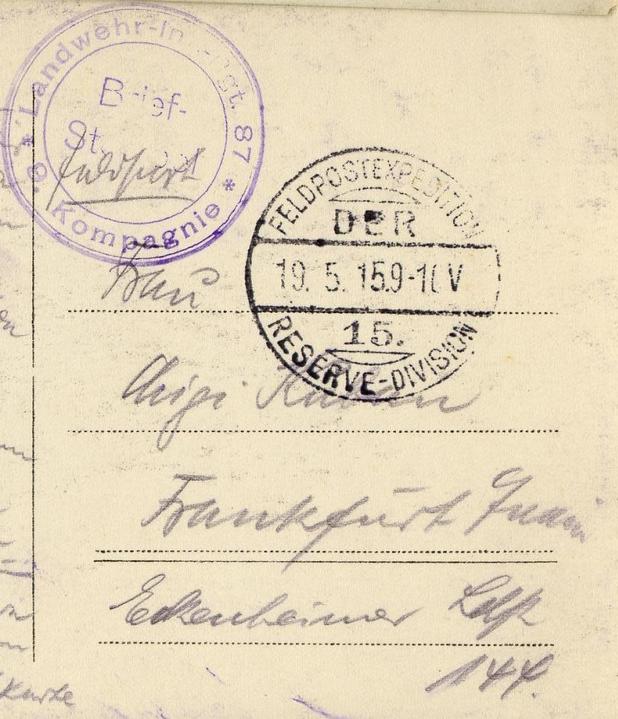 Landwehr-In Rgt. 87
Brief-
St
* 9. Kompagnie *
Feldpost
FELDPOSTEXPEDITION
DER
19. 5. 15 9-10 V
15.
RESERVE-DIVISION
Frau
Frankfurt Main
Eckenheimer Ldstr
144.
Karte